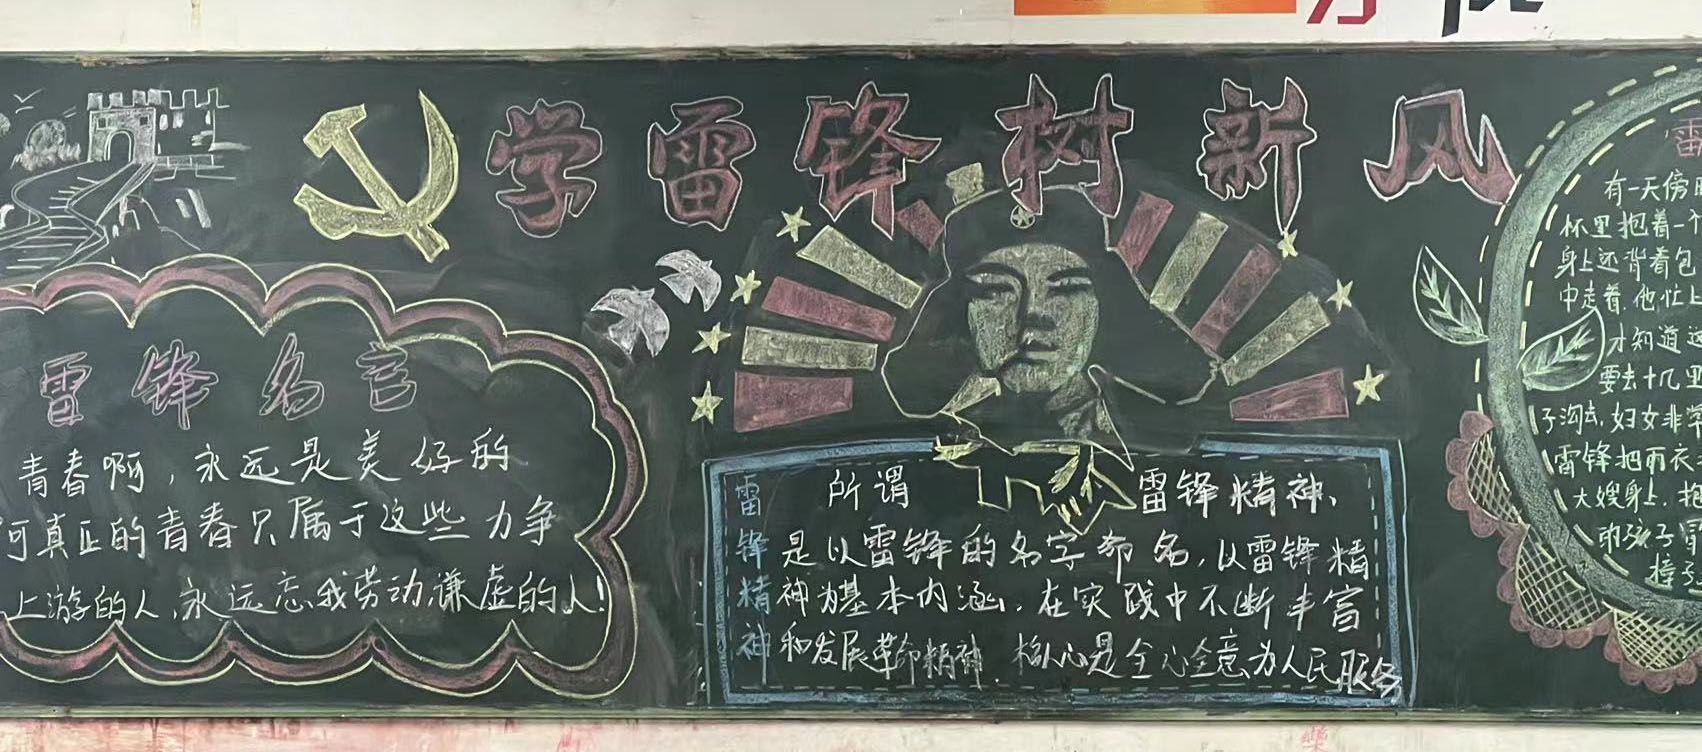 学雷锋树新风
雷锋名言
青春啊,永远是美好的
可真正的青春只属于这些力争
上游的人,永远忘我劳动,谦虚的人!
雷锋精神
所谓 雷锋精神,
是以雷锋的名字命名,以雷锋精
神为基本内涵,在实践中不断丰富
和发展革命精神.核心是全心全意为人民服务
雷
有一天傍
怀里抱着一个
身上还背着包
中走着,他忙上
才知道这
要去十几里
子沟去,妇女非常
雷锋把雨衣
大嫂身上,抱
的孩子冒